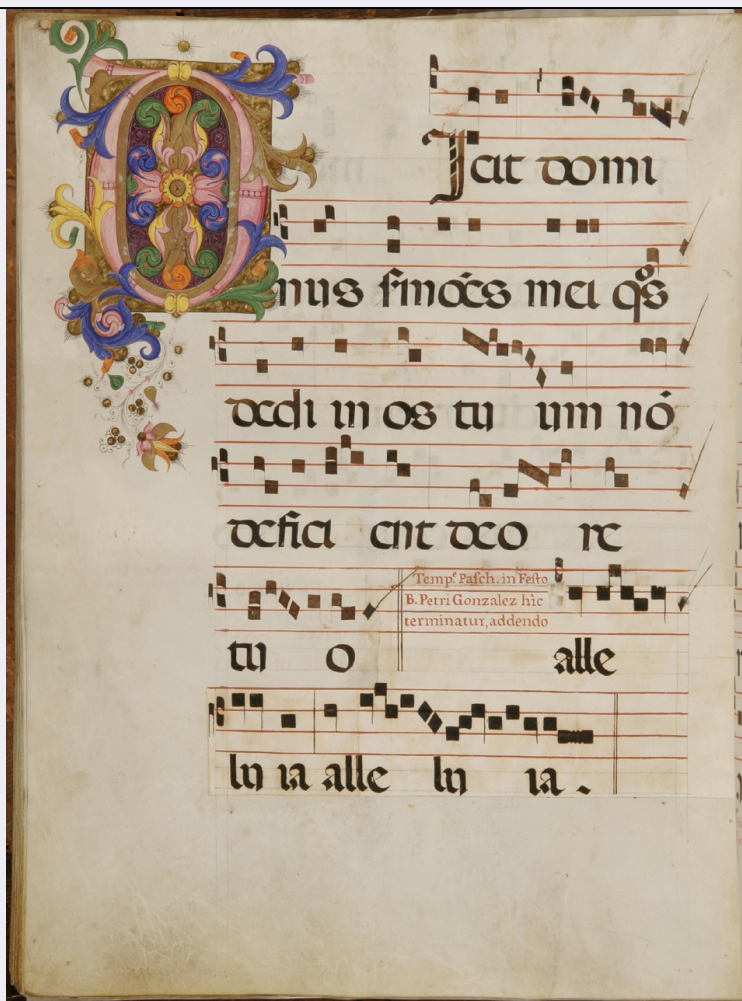 DIcit domi
nus ſmōēs mei qͦs
dedi in os tu um nō
defici ent deo re
tu o
Tempᵉ Paſch. in Feſto
B. Petri Gonzalez hìc
terminatur, addendo
alle
lu ia alle lu ia .